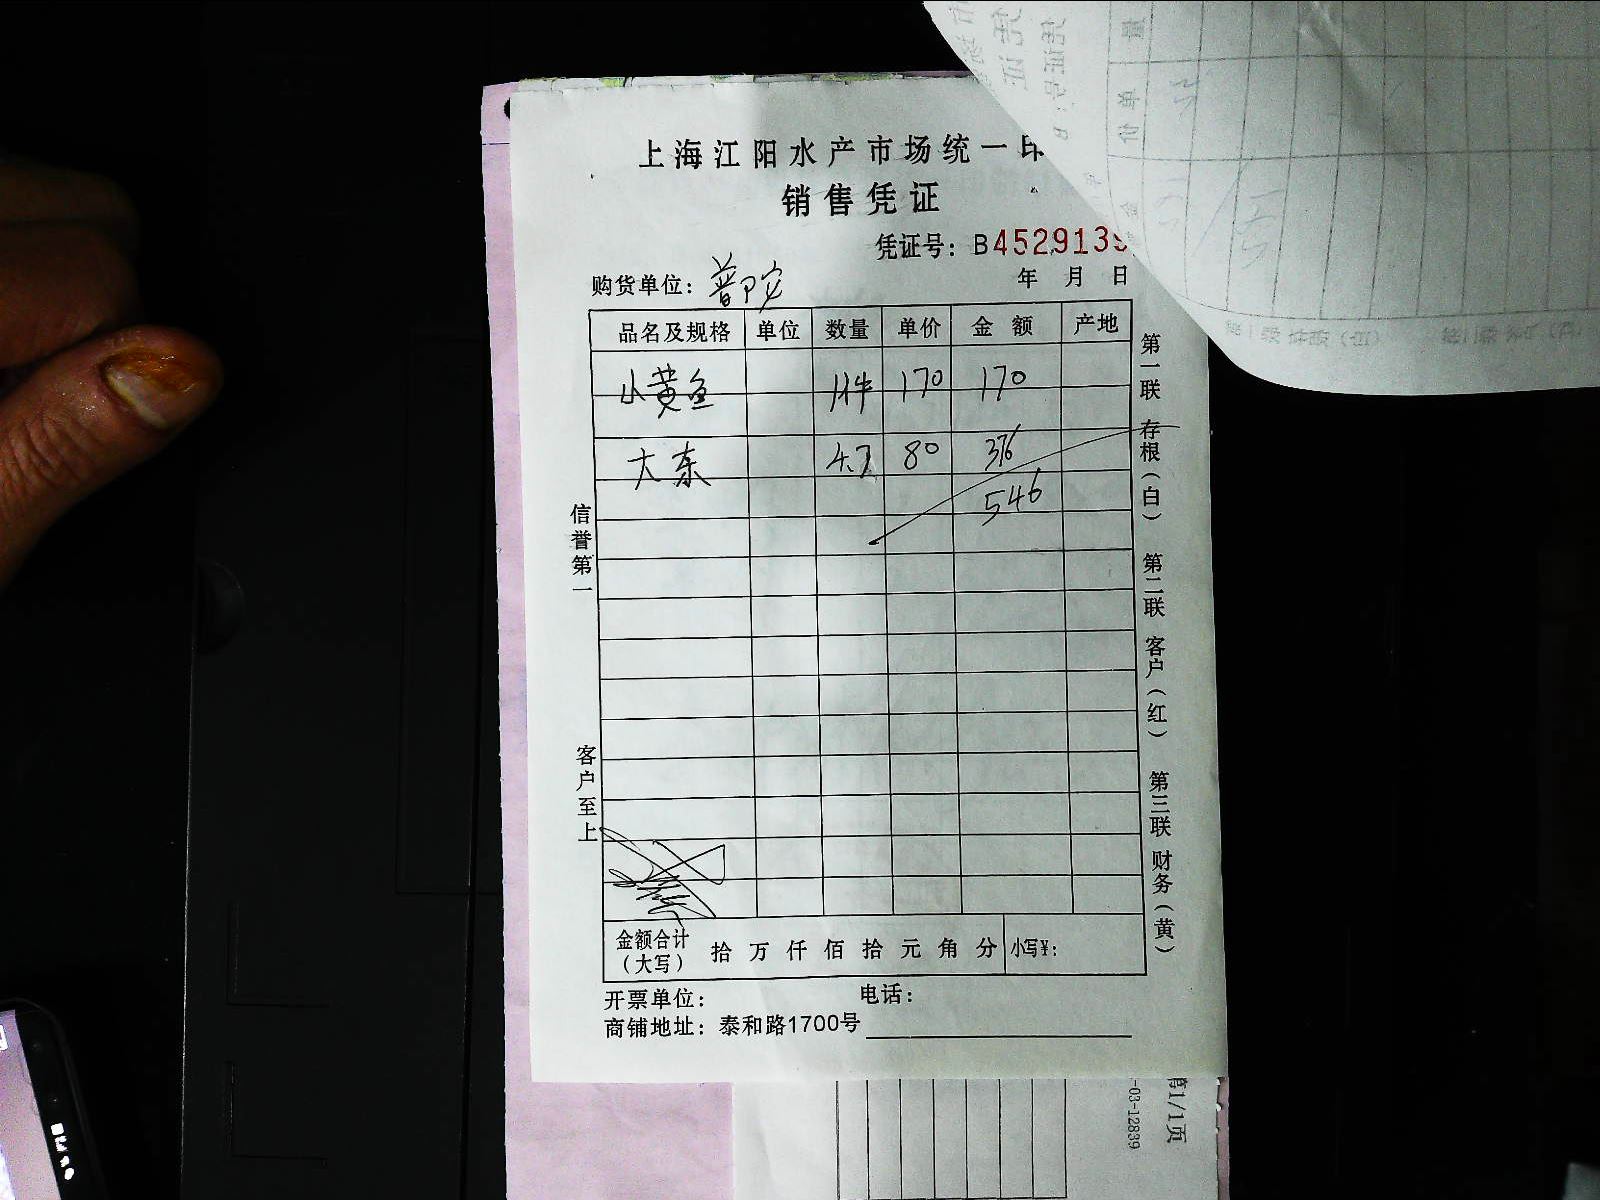 上海江阳水产市场统一印
销售凭证
凭证号：B4529139
年 月 日
购货单位：普陀
品名及规格 单位 数量 单价 金额 产地
小黄鱼 1件 170 170
大东 4.7 80 376
546
信誉第一
客户至上
第一联 存根（白） 第二联 客户（红） 第三联 财务（黄）
金额合计（大写） 拾 万 仟 佰 拾 元 角 分 小写¥：
开票单位： 电话：
商铺地址：泰和路1700号
-03-12839
第1/1页